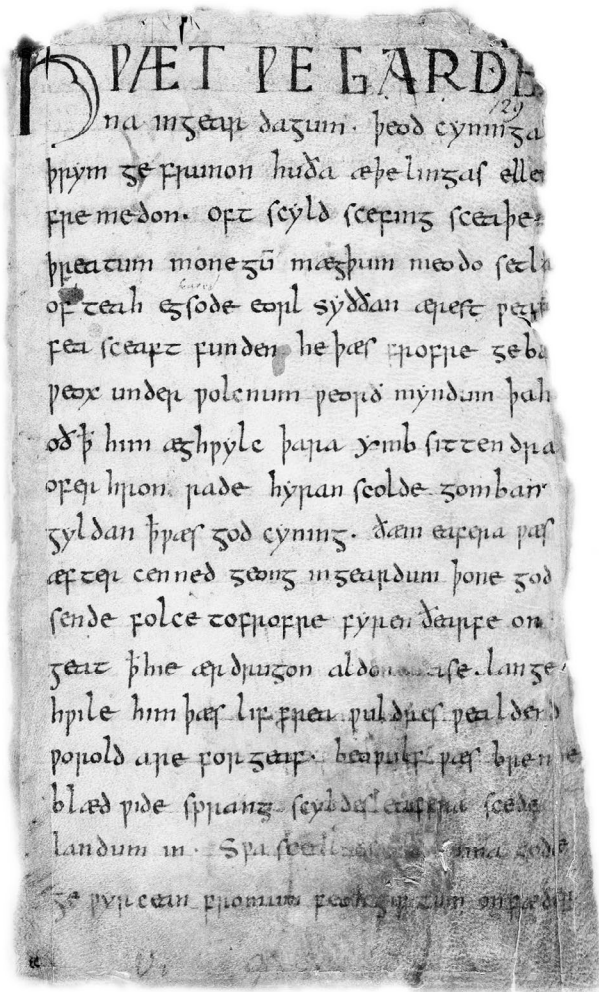 HǷÆT ǷE GARDE
129
na in gear dagum. þeod cyninga
þrym ge frunon huða æþelingas elle
fremedon. oft scyld scefing sceaþe
þreatum monegū mægþum meodo setla
of teah egsode eorl syððan ærest ƿear
fea sceaft funden he þæs frofre geba
ƿeox under ƿolcnum ƿeorð myndum þah
oð ꝥ him æghƿylc þara ymb sittendra
ofer hron rade hyran scolde gomban
gyldan ꝥ ƿæs god cyning. ðæm eafera ƿæs
æfter cenned geong in geardum þone god
sende folce to frofre fyren ðearfe on
geat ꝥ hie ær drugon aldor ase. lange
hƿile him þæs lif frea ƿuldres ƿealdend
ƿorold are for geaf. beoƿulf ƿæs breme
blæd ƿide sprang scyldes eafera scede
landum in. Sƿa sceal guma gode
ge ƿyrcean fromum feoh giftum on fæder